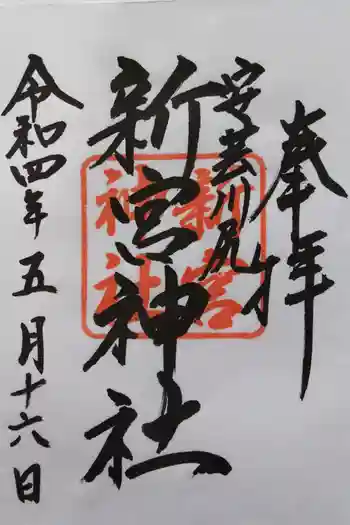 奉拝
安芸川尻
新宮神社
新宮神社
令和四年五月十六日